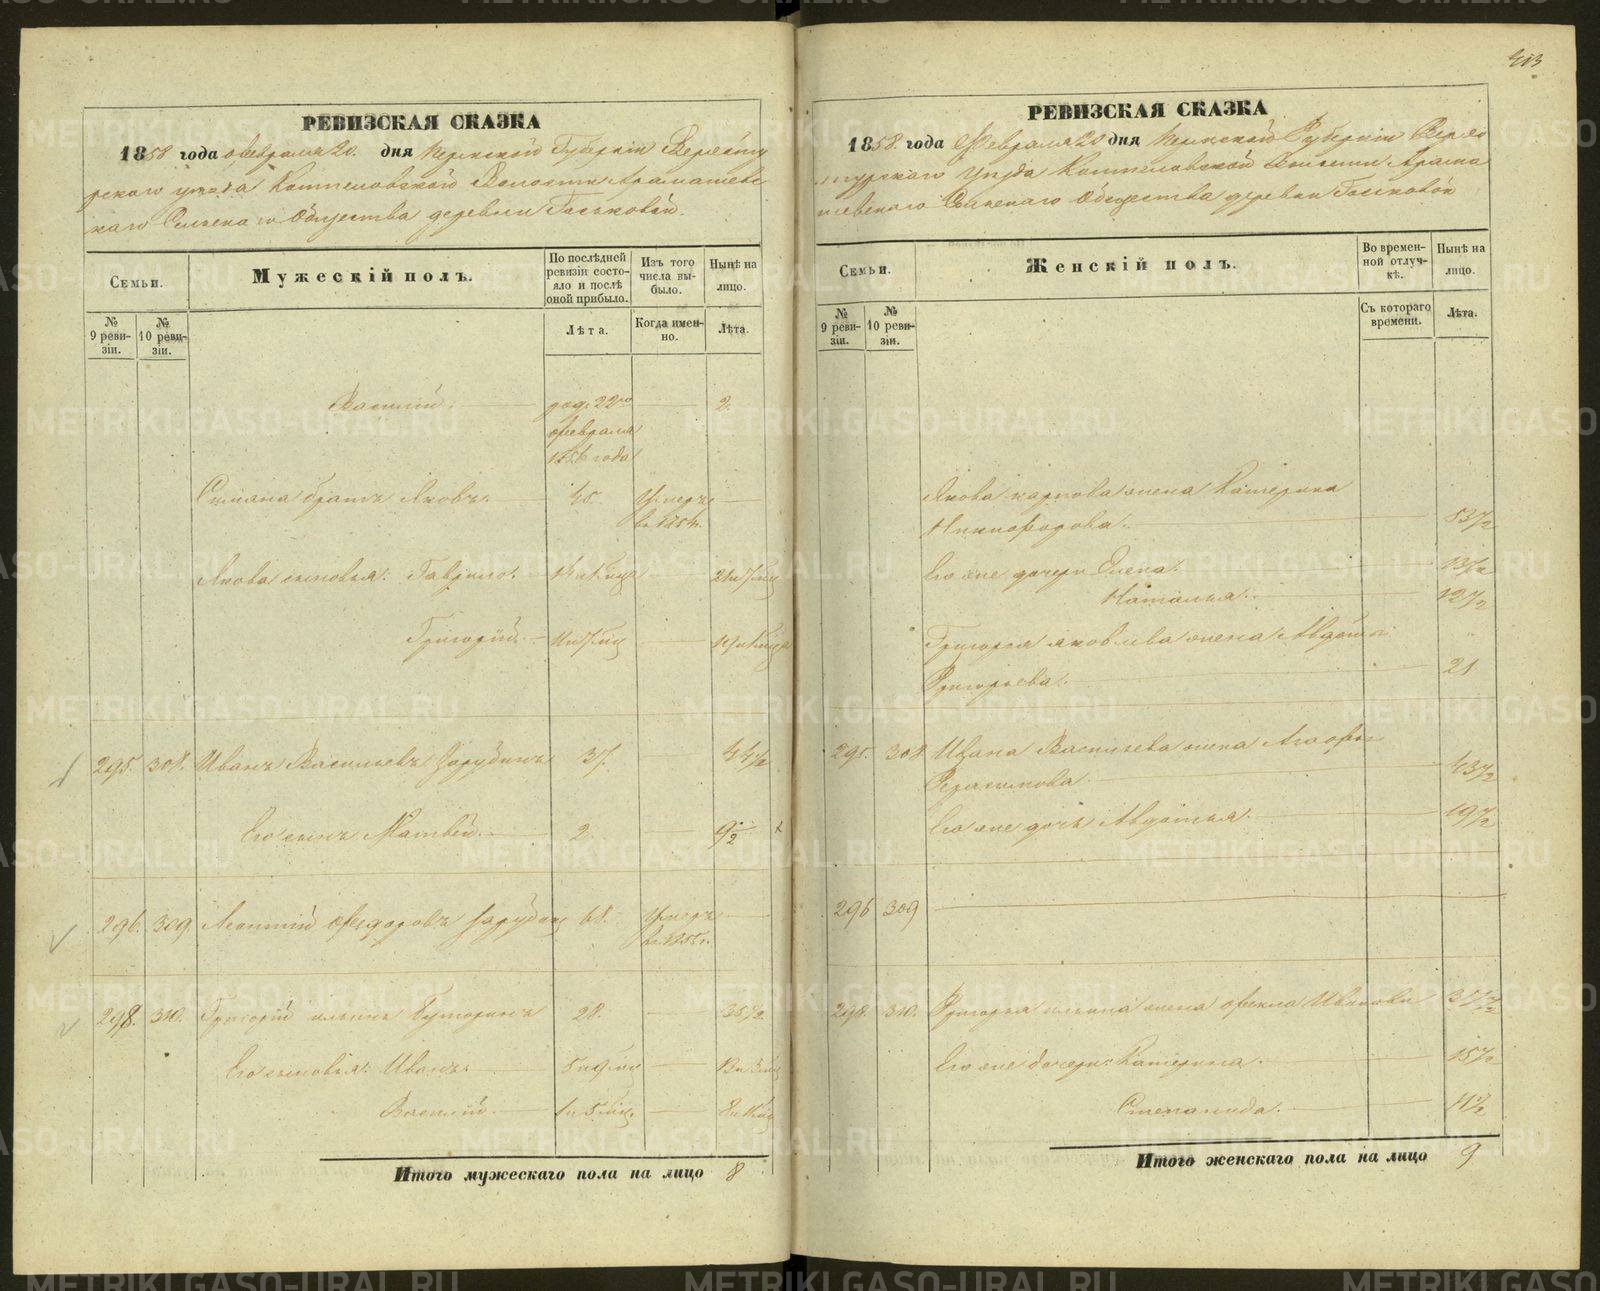 413
РЕВИЗСКАЯ СКАЗКА
1858 года февраля 20. дня Пермской Губернiи Верхоту
рскаго уезда Коптеловской Волости Арамашевс
каго Сельскаго Общества деревни Госьковой.
Семьи.
Мужескiй полъ.
По послѣдней ревизiи состояло и послѣ оной прибыло.
Изъ того числа выбыло.
Нынѣ на лицо.
№ 9 ревизiи.
№ 10 ревизiи.
Лѣта.
Когда именно.
Лѣта.
Василiй. род. 22го февраля 1856 года 2.
братъ Яковъ. 45. Умеръ
Якова сыновья: Гаврило.
Григорiй.
295. 308. Иванъ Васильевъ 37. 44½
Его сынъ Матвей. 2. 9½
296. 309 Леонтiй Федоровъ 68. Умеръ
298. 310. Григорiй Ильинъ 28. 35½
Его сыновья: Иванъ. 5 и 9 мц
Василiй. 1 и 5 мц.
Итого мужескаго пола на лицо 8
РЕВИЗСКАЯ СКАЗКА
1858. года Февраля 20 дня Пермской Губернiи Верхо
турскаго уезда Коптеловской Волости Арама
шевскаго Сельскаго Общества деревни Госьковой
Семьи.
Женскiй полъ.
Во временной отлучкѣ.
Нынѣ на лицо.
№ 9 ревизiи.
№ 10 ревизiи.
Съ котораго времени.
Лѣта.
Якова Карпова жена Катерина
Никифорова. 53½
Его же дочери Елена.
Наталья. 12½
Григорья Яковлева жена Авдотья
Григорьева. 21
295. 308 Ивана Васильева жена Агафья
Герасимова 43½
Его же дочь Авдотья. 19½
296 309
298. 310. Григорья Ильина жена Фекла Иванова
Его же дочери: Катерина. 15½
Степанида. 11½
Итого женскаго пола на лицо 9
METRIKI.GASO-URAL.RU